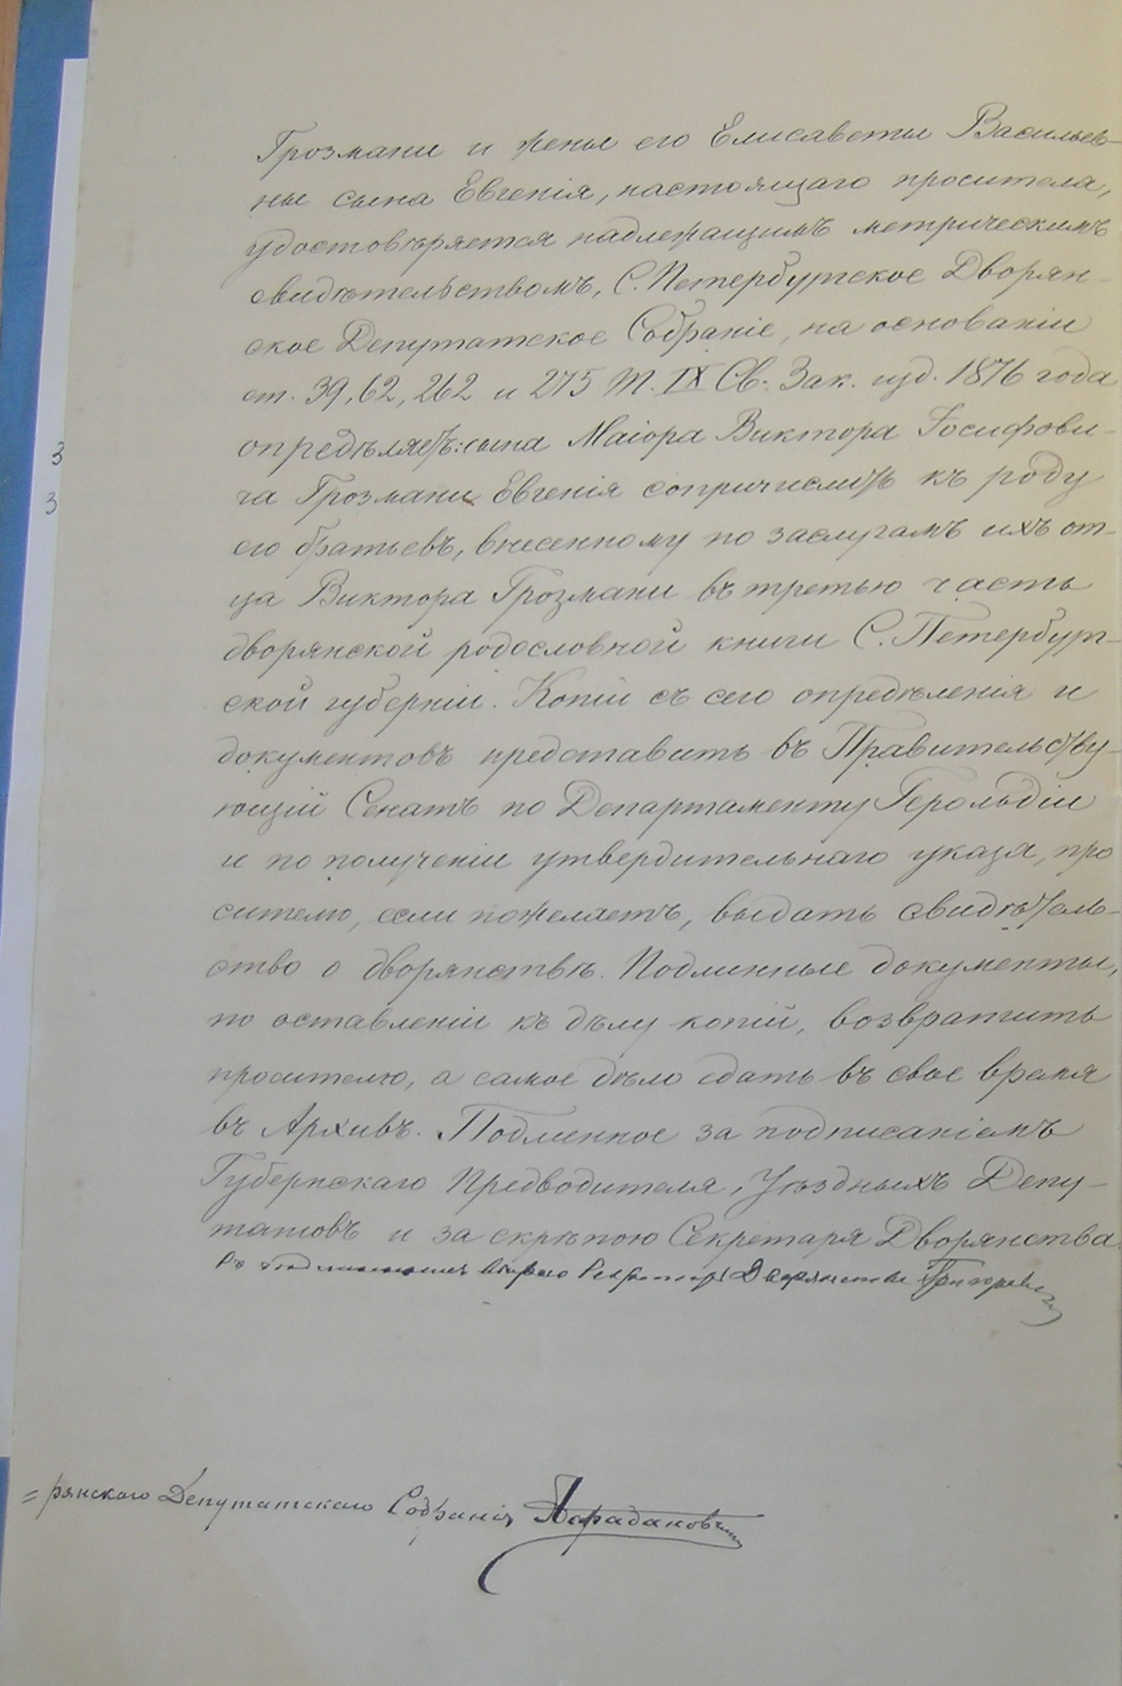 Грозмани и жены его Елисаветы Васильев-
ны сына Евгенія, настоящаго просителя,
удостовѣряется надлежащимъ метрическимъ
свидѣтельствомъ, С. Петербургское Дворян-
ское Депутатское Собраніе, на основаніи
ст. 39, 62, 262 и 275 Т. IX Св. Зак. изд. 1876 года
опредѣляетъ: сына Маіора Виктора Іосифови-
3
ча Грозмани Евгенія сопричислить къ роду
3
его братьевъ, внесенному по заслугамъ ихъ от-
ца Виктора Грозмани въ третью часть
дворянской родословной книги С. Петербург-
ской губерніи. Копіи съ сего опредѣленія и
документовъ представить въ Правительству-
ющій Сенатъ по Департаменту Герольдіи
и по полученіи утвердительнаго указа, про
сителю, если пожелаетъ, выдать свидѣтель-
ство о дворянствѣ. Подлинные документы,
по оставленіи къ дѣлу копій, возвратить
просителю, а самое дѣло сдать въ свое время
въ Архивъ. Подлинное за подписаніемъ
Губернскаго Предводителя, Уѣздныхъ Депу-
татовъ и за скрѣпою Секретаря Дворянства.
Секретарь Дворянства
=рянскаго Депутатскаго Собранія